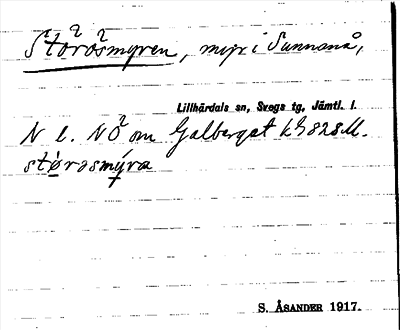 Storösmyren, myr i Sunnanå,
Lillhärdals sn, Svegs tg, Jämtl. l.
N l. NÖ om Galberget
størosmýra
S. ÅSANDER 1917.